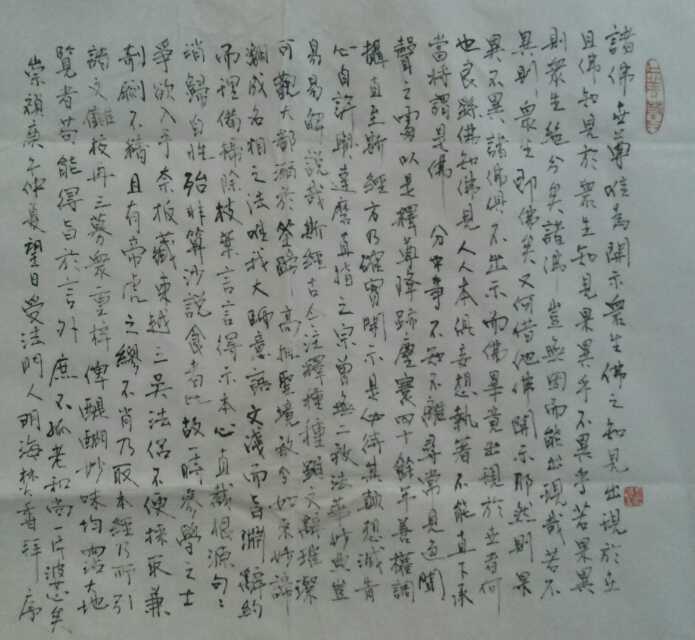 諸佛世尊唯為開示衆生佛之知見出現於世
且佛知見於衆生知見果異乎不異乎若果異
則衆生絕分矣諸佛豈無因而能出現哉若不
異則衆生即佛矣又何借他佛開示耶然則果
異不異諸佛俱不出示而佛畢竟出現於世者何
也良繇佛知佛見人人本俱妄想執著不能直下承
當將謂是佛分中事不知不離尋常見過聞
聲之處以是釋尊降跡塵寰四十餘年善權調
攝直至斯經方乃確實開示是必待其顛想滅肯
心自許與達磨直指之宗曾無二致法華妙典豈
易易解說哉斯經古今注釋種種顯文璀璨
可觀大都涵於筌蹄高推聖境致令如來妙諦
翻成名相之法唯我大師意語文淺而旨淵辭約
而理備掃除枝葉言言得示本心直截根源句句
消歸自性殆非算沙說食者比故一時參學之士
爭欲入手奈板藏東越三吳法侶不便採取兼
剞劂不精且有帝虎之繆不肖乃取本經所引
諸文讎校再三募衆重梓俾醍醐妙味均霑大地
覽者苟能得旨於言外庶不孤老和尚一片婆心矣
崇禎庚午仲夏望日受法門人明海焚香拜序